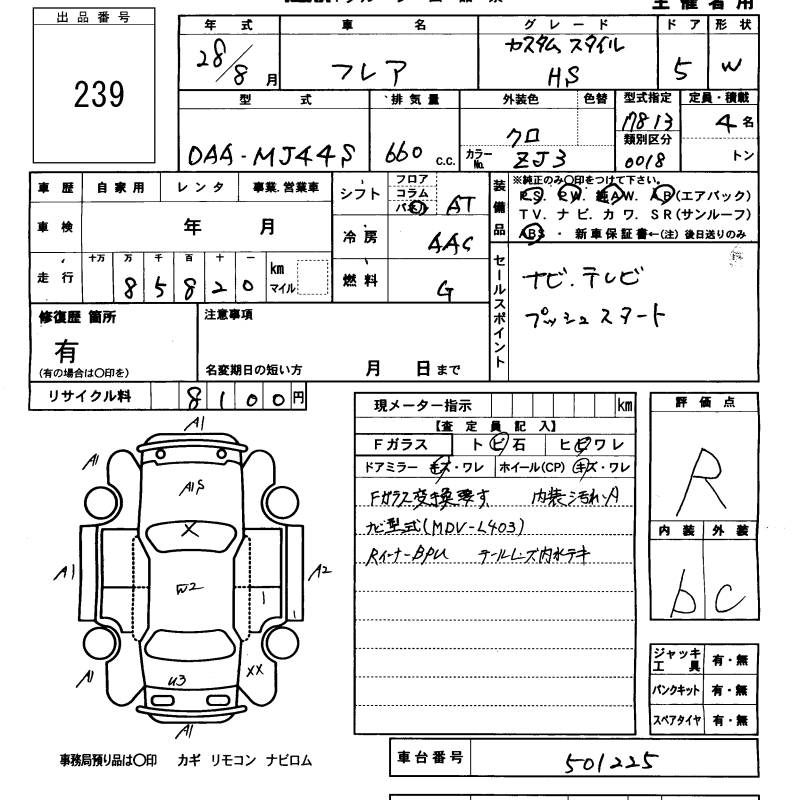 主催者用
出品番号
239
年式 車名 グレード ドア 形状
28/8月 フレア カスタムスタイル HS 5 W
型式 排気量 外装色 色替 型式指定 定員・積載
DAA-MJ44S 660 c.c. クロ カラーNo. ZJ3 17813 4名
類別区分 0018 トン
車歴 自家用 レンタ 事業.営業車
車検 年 月
走行 十万 万 千 百 十 一
8 5 8 2 0 km マイル
シフト フロア コラム パネル AT
冷房 AAC
燃料 G
装備品
※純正のみ○印をつけて下さい。
P.S. P.W. 純A.W. A.B(エアバック)
T V. ナ ビ. カ ワ. S R(サンルーフ)
ABS ・ 新車保証書←(注) 後日送りのみ
セールスポイント
ナビ.テレビ
プッシュスタート
修復歴 箇所
有
(有の場合は○印を)
注意事項
名変期日の短い方 月 日まで
リサイクル料 8 1 0 0 円
現メーター指示 km
【査定員記入】
Fガラス トビ石 ヒビワレ
ドアミラー キズ・ワレ ホイール(CP) キズ・ワレ
Fガラス交換要す 内装汚れ
ナビ型式(MDV-L403)
RイナーBPU テールレンズ内水テキ
評価点
R
内装 外装
b C
ジャッキ工具 有・無
パンクキット 有・無
スペアタイヤ 有・無
A1
A1
A1S
X
A1
W2
A2
1
1
A1
U3
XX
A1
事務局預り品は○印 カギ リモコン ナビロム
車台番号 501225